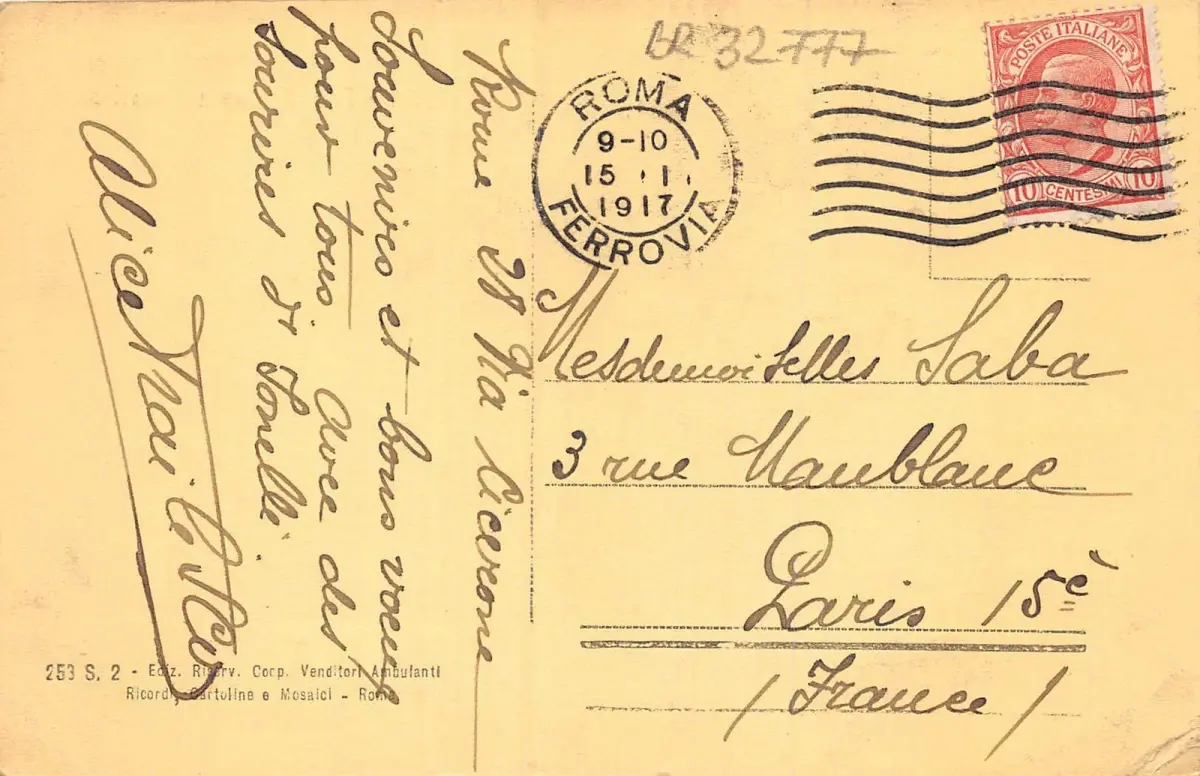 BR 32777
POSTE ITALIANE
10 CENTESIMI 10
ROMA
9-10
15 · I ·
1917
FERROVIA
Rome 98 Via Cicerone
Souvenires et bons voeux
pour tous. Avec des
sourires di Tonelli
Alice
Mesdemoiselles Saba
3 rue Maublanc
Paris 15è
/ France /
253 S. 2 - Ediz. Riserv. Corp. Venditori Ambulanti
Ricordi, Cartoline e Mosaici - Roma